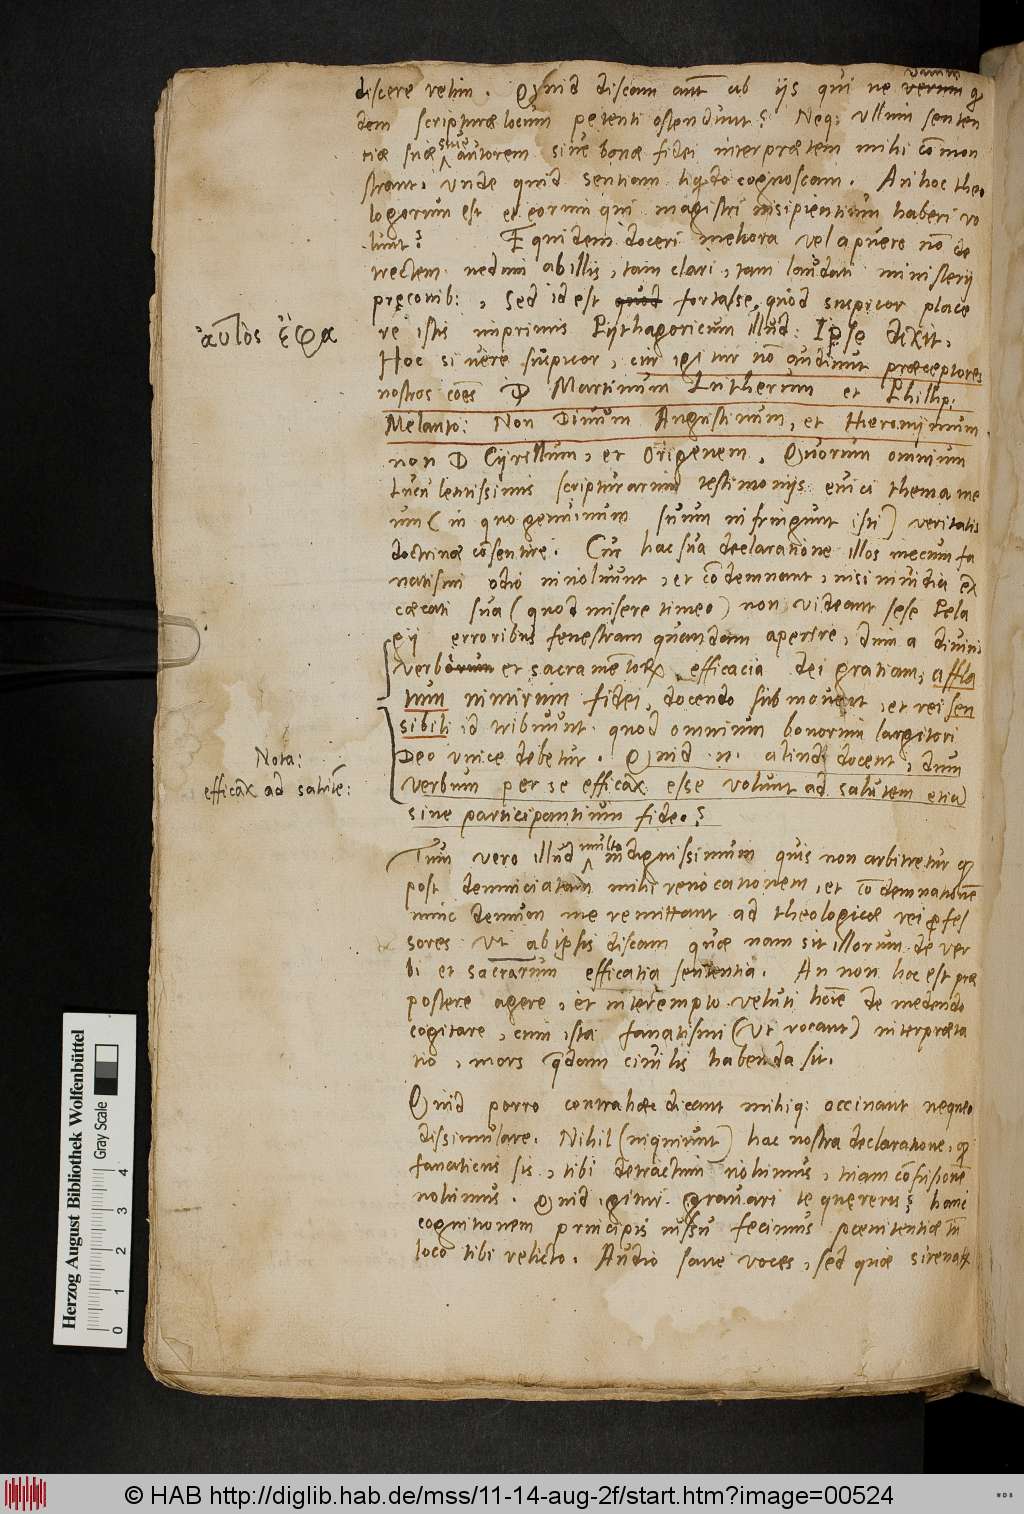 unum
discere velim. Quid discam aūt ab iis qui ne verum q
dem scripturæ locum petenti ostendunt? Neq; ullum senten
tiæ suæ sive autorem sive bonæ fidei interprætem mihi cōmon
strant, unde quid sentiam liquido cognoscam. An hoc theo
logorum est et eorum qui magistri insipientium haberi vo
lunt? Equidem doceri meliora vel a puero nō de
trectem nedum ab illis, tam clari, tam laudati ministerii
pręconib:, Sed id est quod fortasse, quod suspicor place
re istis inprimis Pythagoricum illud: Ipse dixit,
αυτὸς ἔφα
Hoc si vere suspicor, cur igitur nō audiunt præceptores
nostros cōes D Martinum Lutherum et Phillip.
Melanto: Non Divum Augustinum, et Hieronymum
non D Cyrillum, et Origenem. Quorum omnium
luculentissimis scripturarum testimoniis evici thema me
um (in quo genuinum suum infringunt isti) veritatis
doctrinæ cōsentire. Cur hac sua declaratione illos mecum fa
natismi odio involvunt, et cōdemnant, nisi invidia ex
cæcati sua (quod misere timeo) non videant sese Pela
gii erroribus fenestram quandam aperire, dum a divini
verborum et sacramētorum efficacia dei gratiam, affla
tum nimirum fidei, docendo submovent, et rei sen
sibili id tribuunt quod omnium bonorum largitori
Deo unice debetur. Quid .n. aliud docent, dum
verbum per se efficax esse volunt ad salutem etiā
sine participantium fide?
Nota:
efficax ad salutē:
Tum vero illud multo indignissimum quis non arbitretur q
post denunciatam mihi revocationem, et cōdemnationē
nunc demum me remittant ad theologicæ rei pfes
sores ut ab ipsis discam quæ nam sit illorum de ver
bi et sacrarum efficatia sententia. An non hoc est præ
postere agere, et interempto veluti hōie de medendo
cogitare, cum ista fanatismi (ut vocant) interpræta
tio, mors quædam civilis habenda sit.
Quid porro contra hæc dicant mihiq; occinant nequeo
dissimulare. Nihil (inquiunt) hac nostra declaratione, q
fanaticus sis, tibi detractum volumus, tuam cōfusionē
volumus. Quid igitur gravari te quereris? hanc
cognitionem principis iussu fecimus pœnitentiæ tn̄
loco tibi relicto. Audio sane voces, sed quæ sirenarum
Herzog August Bibliothek Wolfenbüttel
Gray Scale
0 1 2 3 4
© HAB http://diglib.hab.de/mss/11-14-aug-2f/start.htm?image=00524